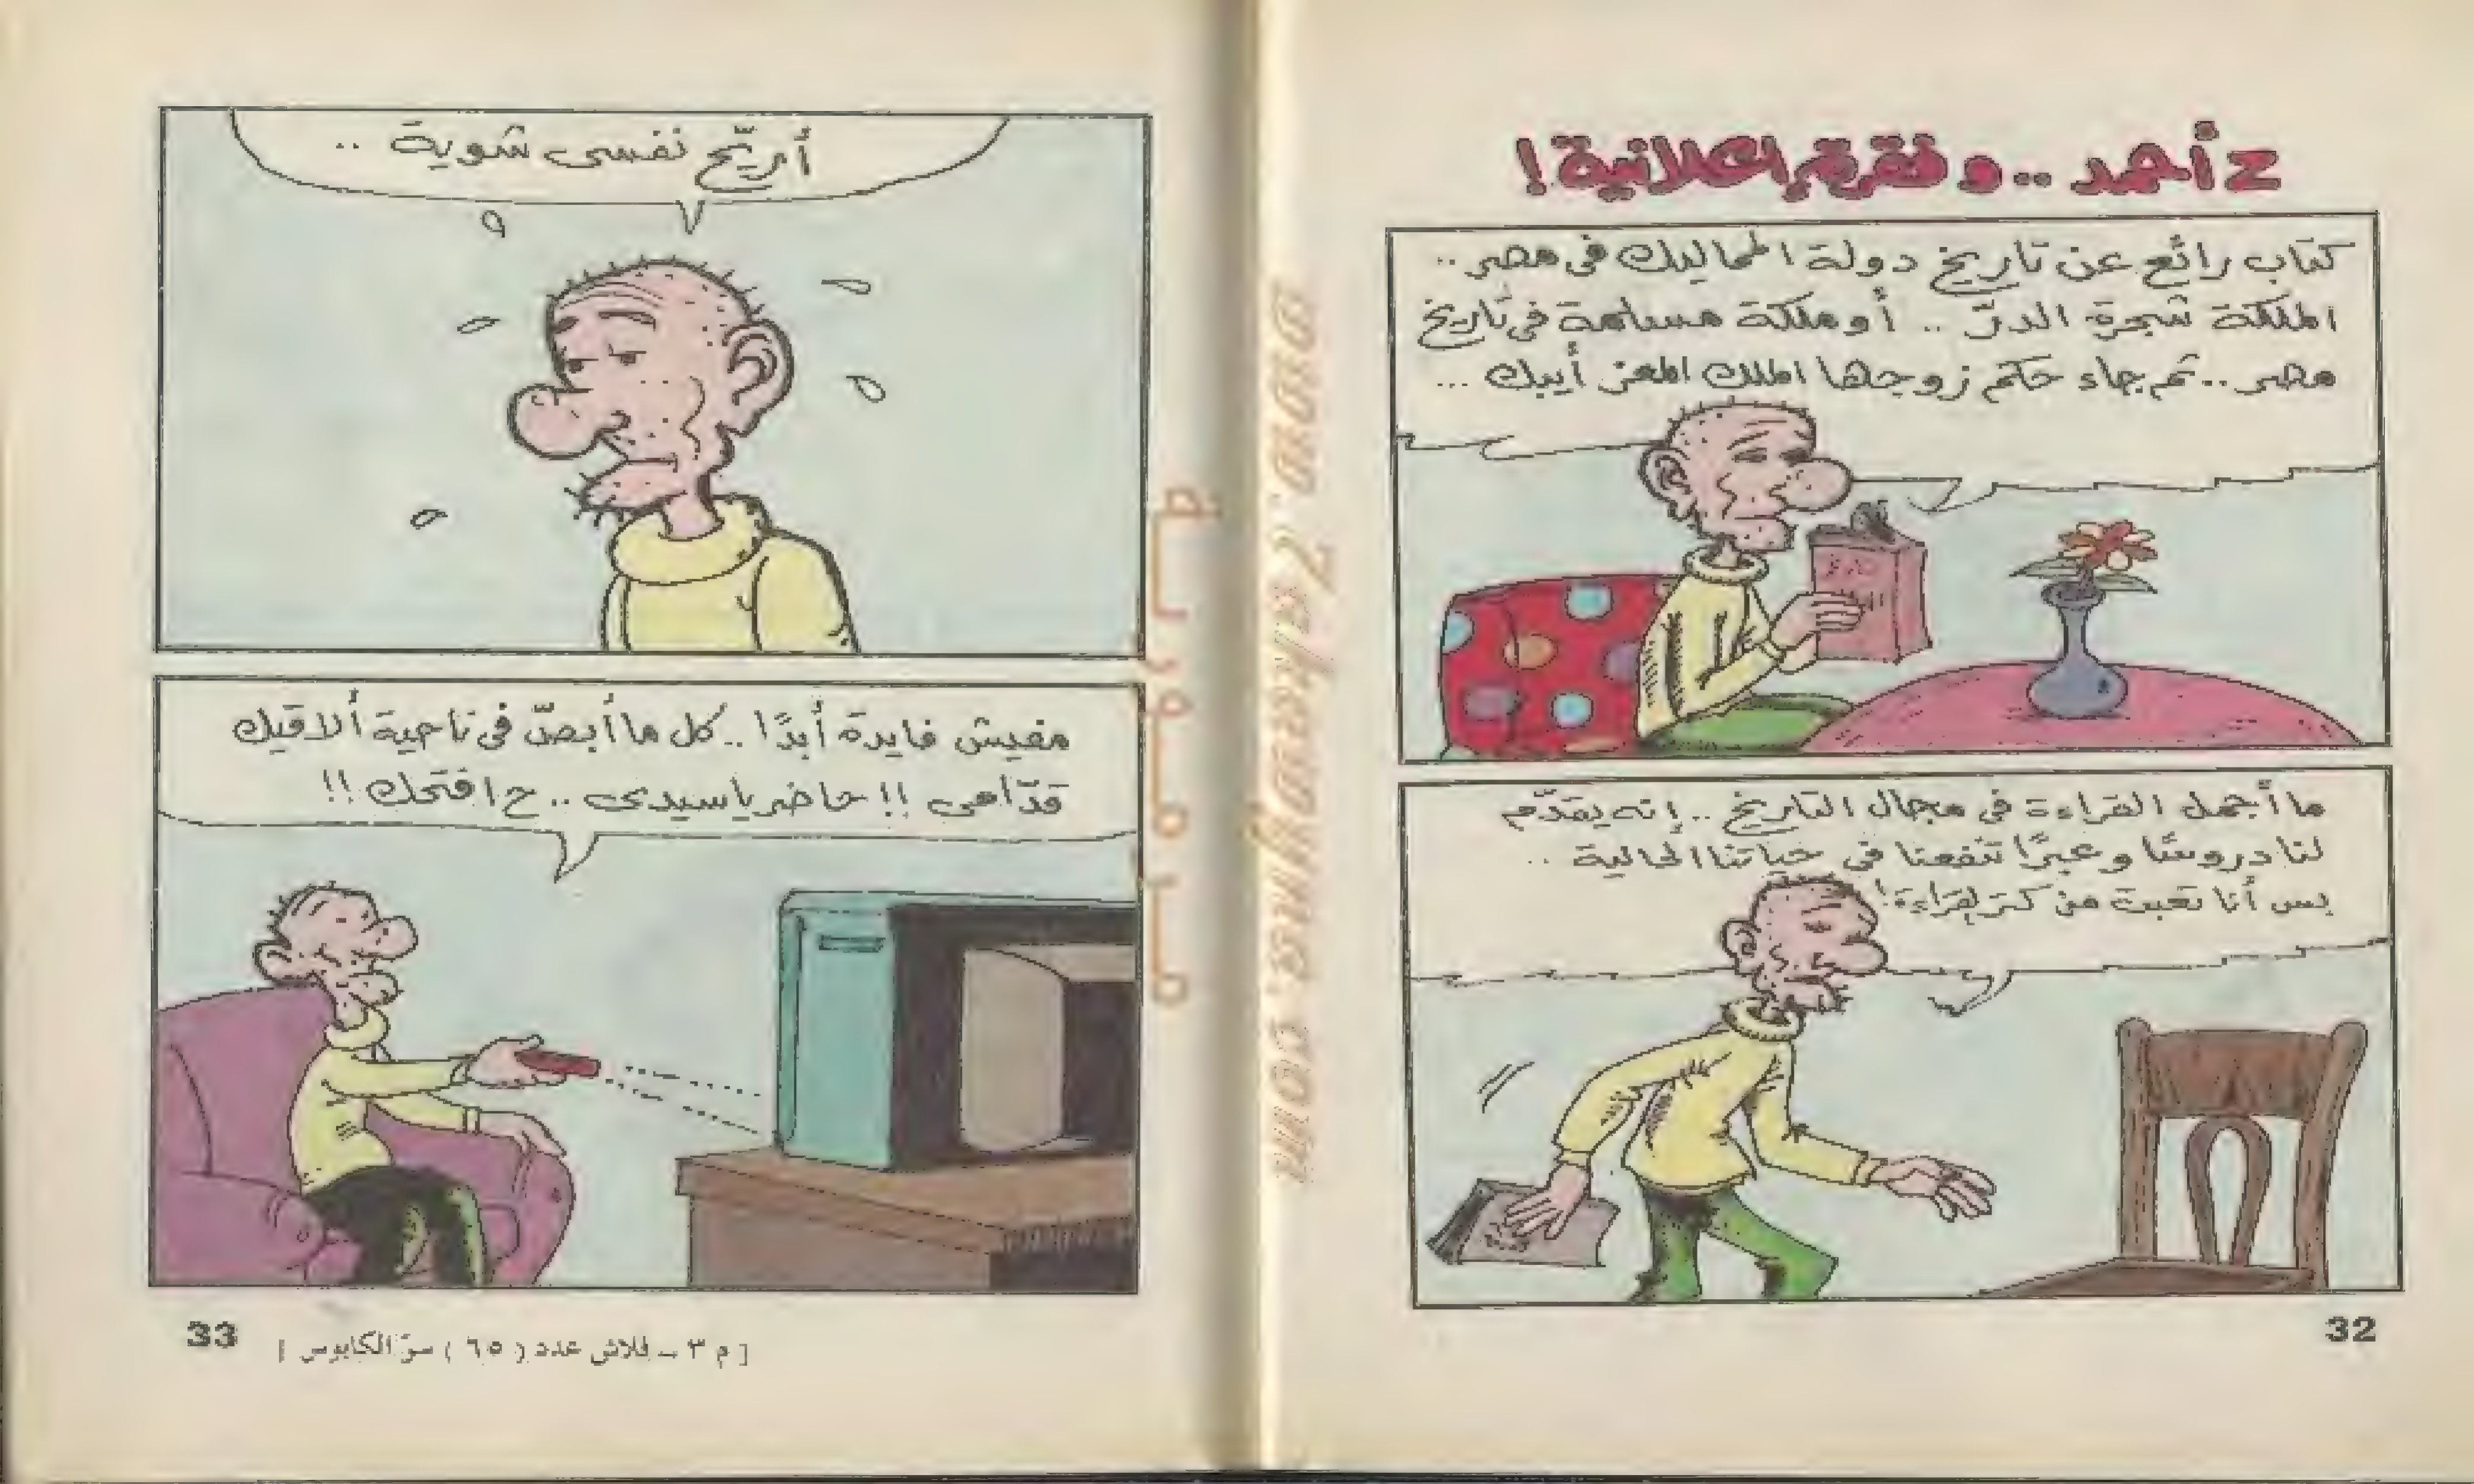 ع أحمد .. وفقرة إعلانية !
كتاب رائع عن تاريخ دولة المماليك فى مصر ..
الملكة شجرة الدرّ .. أو ملكة مسلمة فى تاريخ
مصر .. ثم جاء حكم زوجها الملك المعز أيبك ...
ما أجمل القراءة فى مجال التاريخ .. إنه يقدّم
لنا دروسًا وعبرًا تنفعنا فى حياتنا الحالية ..
بس أنا تعبت من كتر القراءة !
32
أريّح نفسى شوية ..
مفيش فايدة أبدًا .. كل ما أبصّ فى ناحية ألاقيك
قدّامى !! حاضر يا سيدى .. ح افتحك !!
33
[ م ٣ ــ فلاش عدد ( ٦٥ ) سرّ الكابوس ]